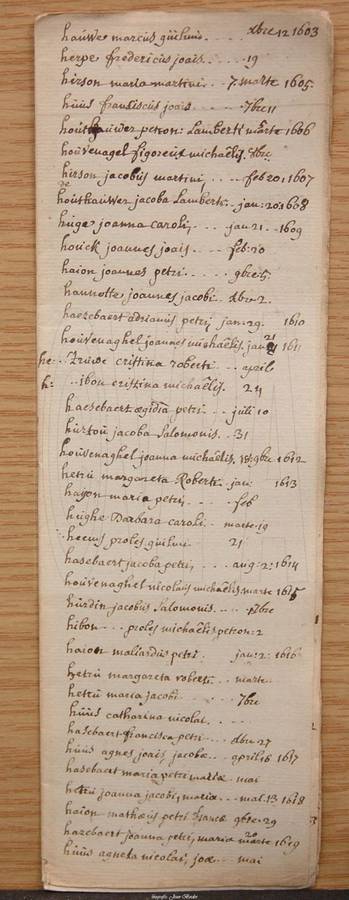 hauwe marcus guilmi. . . . . xbre 12 1603
herpe fredericus joais . . . . 19
hirson maria martini . . 7. marte 1605.
huus fransiscus joais . . . . 7bre 11
houtkauwer petron: Lamberti marte 1606
houvenagel figoreus michaelis. 7bre
hirson jacobus martini, . . . feb 20, 1607
houtkauwer jacoba Lamberti . . jan: 20: 1608
huge joanna caroli, . . . jan 21 . . 1609
houck joannes joais . . . feb: 20
haion joannes petri . . . . . 9bre: 5.
hannotte joannes jacobi xbre 2.
haezebaert adrianus petri, jan: 29. 1610
houvenaghel joannes michaelis. jan 21 1611
he. . Truwe cristina roberti . . april
h: . . ibou cristina michaelis. 24
haesebaert ægidia petri . . . juli 10
hurtou jacoba Salomonis. . 31
houvenaghel joanna michaelis, 9bre 1612
hetru margareta Roberti. jan: 1613
hayon maria petri, . . . feb
hughe Barbara caroli . marte 19
heems proles guilmi 21
hasebaert jacoba petri, . . . aug: 2: 1614
houvenaghel nicolaus michaelis marte 1615
hurdin jacobus Salomonis. . . . 7bre
hibon . . . proles michaelis petron: 2
haion maliardus petri . jan: 2: 1616
hetru margareta roberti. . . marte
hetru maria jacobi . . . 7bre
huus catharina nicolai, . . .
hasebaert francisca petri . . . xbre 27
huus agnes joais, jacobæ . . april 16 1617
hasebaert maria petri mariæ mai
hetru joanna jacobi, maria . . . mai. 13 1618
haion mathæus petri 9bre 29
hazebaert joanna petri, maria 20 marte 1619
huus agneta nicolai, joæ . . . mai